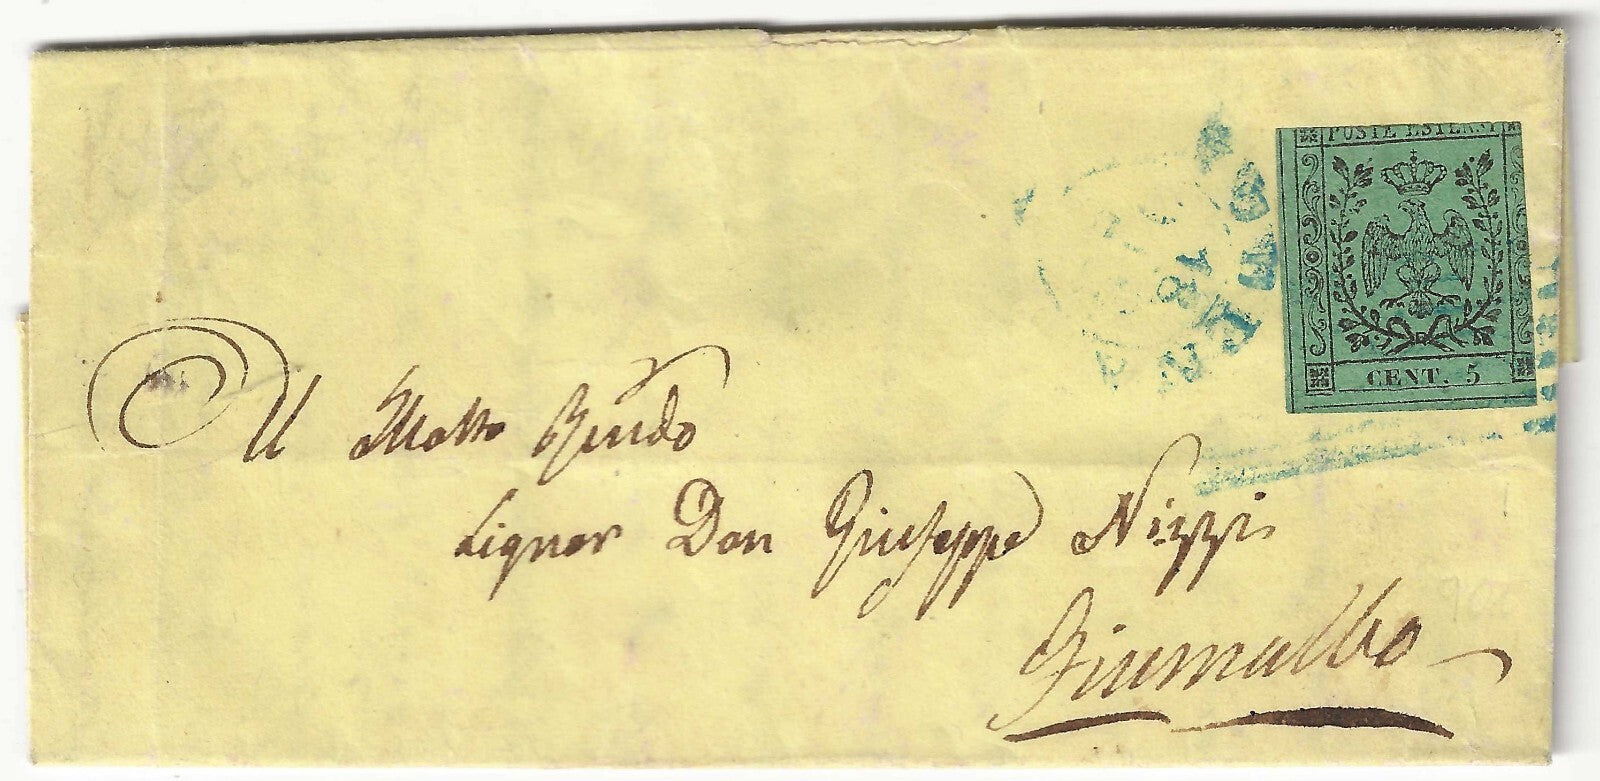 POSTE ESTENSI
CENT. 5
Al Molto Rendo
Signor Don Giuseppe Nizzi
Fiumalbo